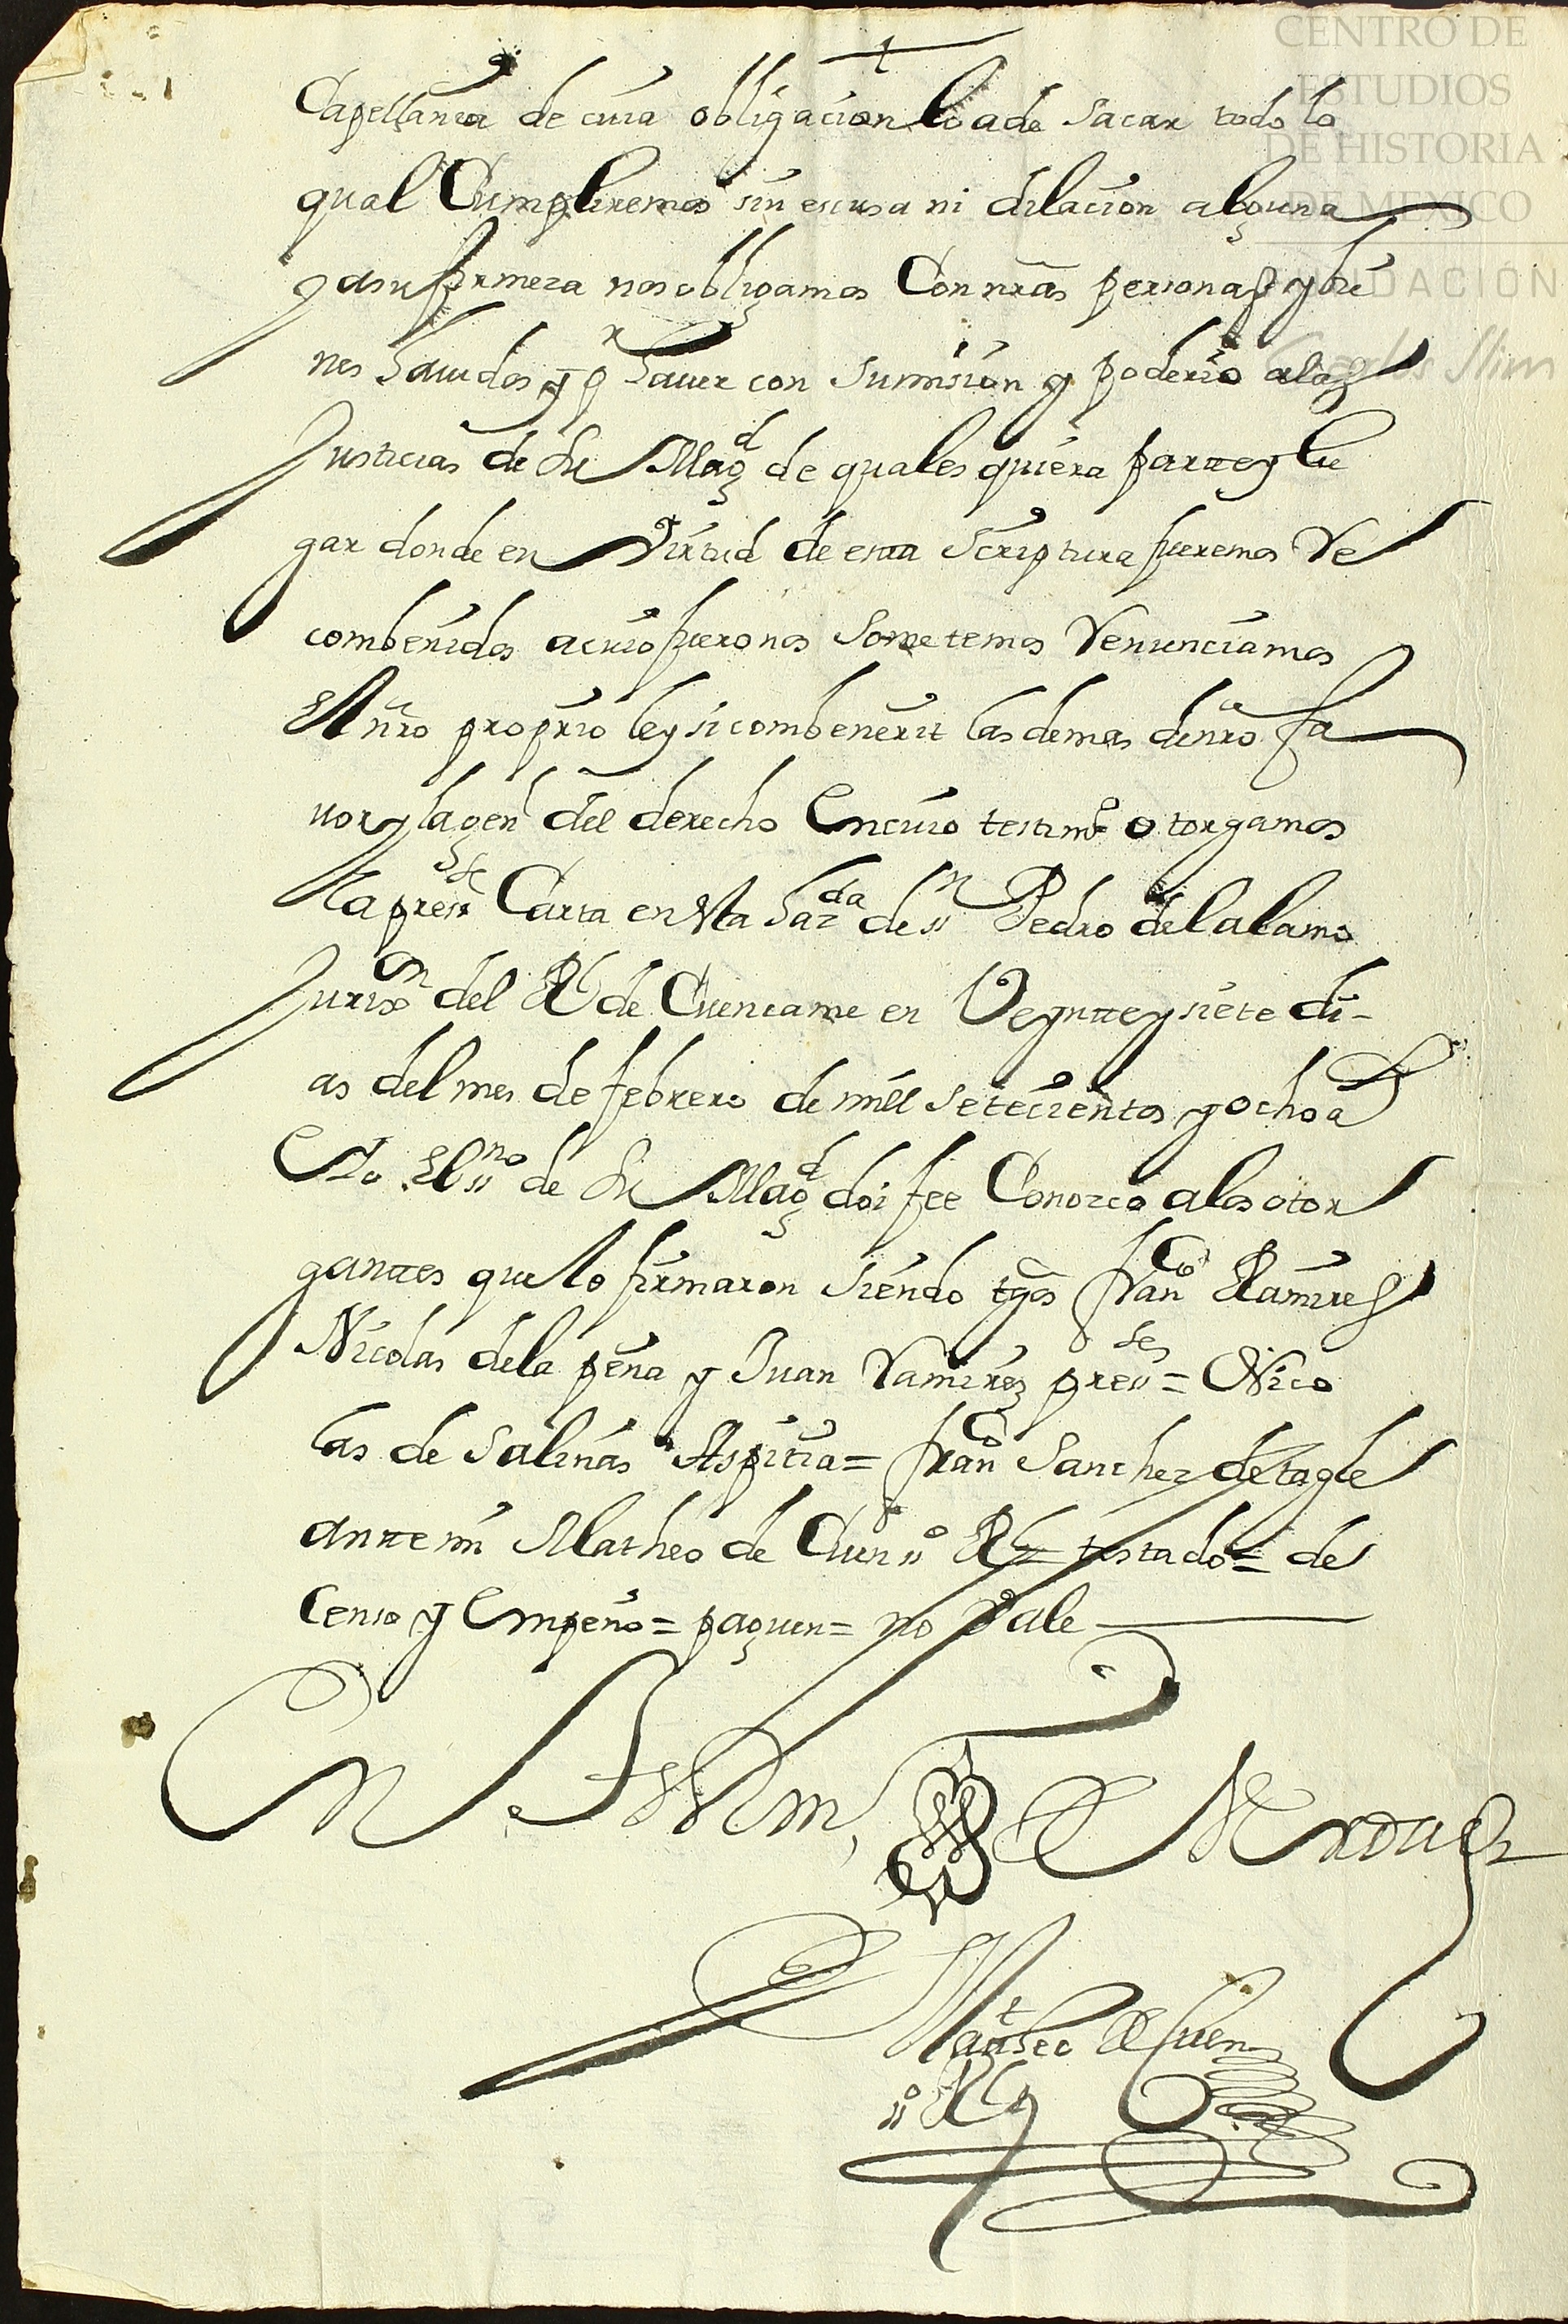 CENTRO DE
ESTUDIOS
DE HISTORIA
DE MEXICO
FUNDACIÓN
Carlos Slim
Capellania de cuia obligacion lo a de sacar todo lo
qual Cumpliremos sin escusa ni dilacion alguna
y a su firmeza nos obligamos Con nrãs personas y bie
nes hauidos y pr hauer con sumision y poderio a las
Justicias de Su Magd de quales quiera parte y lu
gar donde en Virtud de esta Scriptura fueremos Re
combenidos a cuio fuero nos sometemos Renunciamos
El nr̃o proprio ley si combenerit las demas de nr̃o fa
uor y la genl del derecho En cuio testimo otorgamos
la preste Carta en Sta hazda de Sn Pedro del alamo
Jurison del Rl de Cuencame en Veynte y siete di-
as del mes de febrero de mill setecientos y ocho a
Yo El ssno de Su Magd doi fee Conozco a los otor
gantes que lo firmaron siendo tgõs franco Ramires
Nicolas de la peña y Juan Ramirez presstes = Nico
las de Salinas Aspitia = franco Sanchez de tagle
ante mi Matheo de Cuen sso Rl = testado = de
Censo y Empeño = paguen = no Vale
En testim, de Verdad
Matheo de Cuen
sso Rl